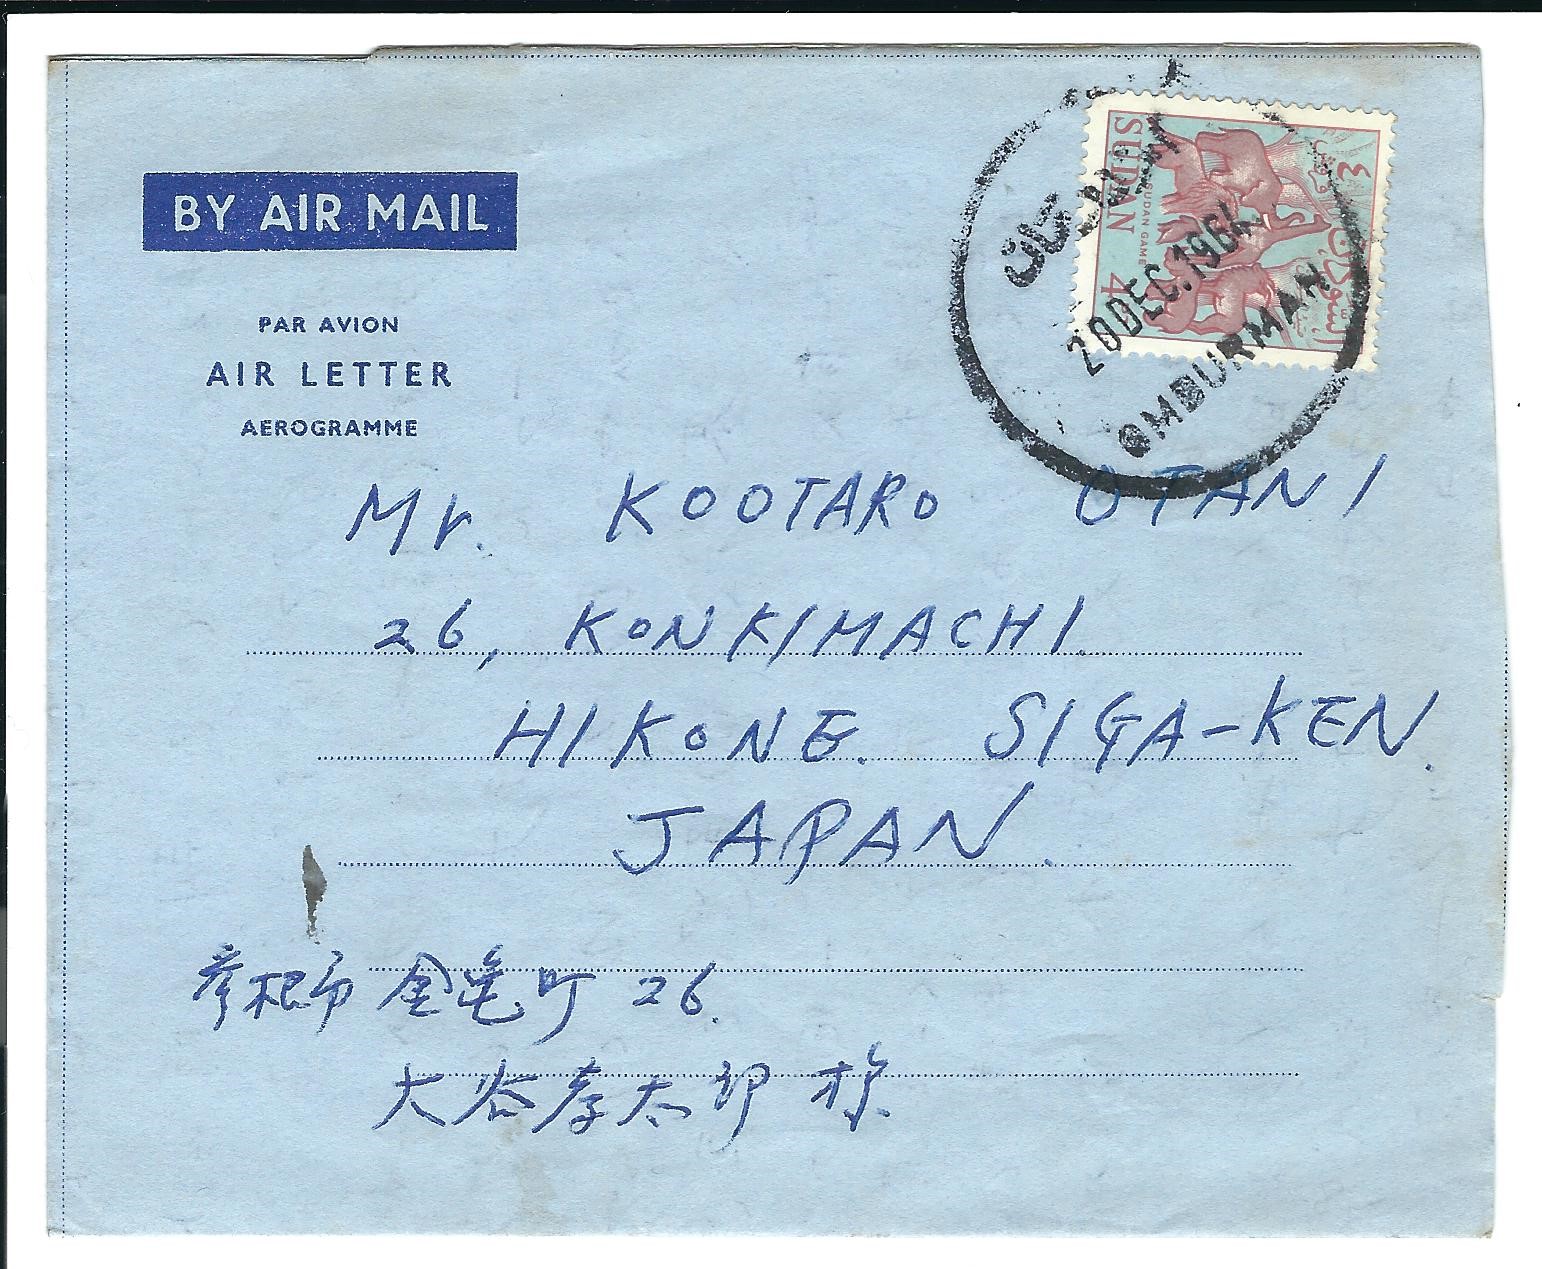 BY AIR MAIL
PAR AVION
AIR LETTER
AEROGRAMME
SUDAN
SUDAN GAME
20 DEC. 1964
OMDURMAN
Mr. KOOTARO OTANI
26, KONKIMACHI.
HIKONE. SIGA-KEN.
JAPAN.
彦根市 金亀町 26.
大谷孝太郎 様